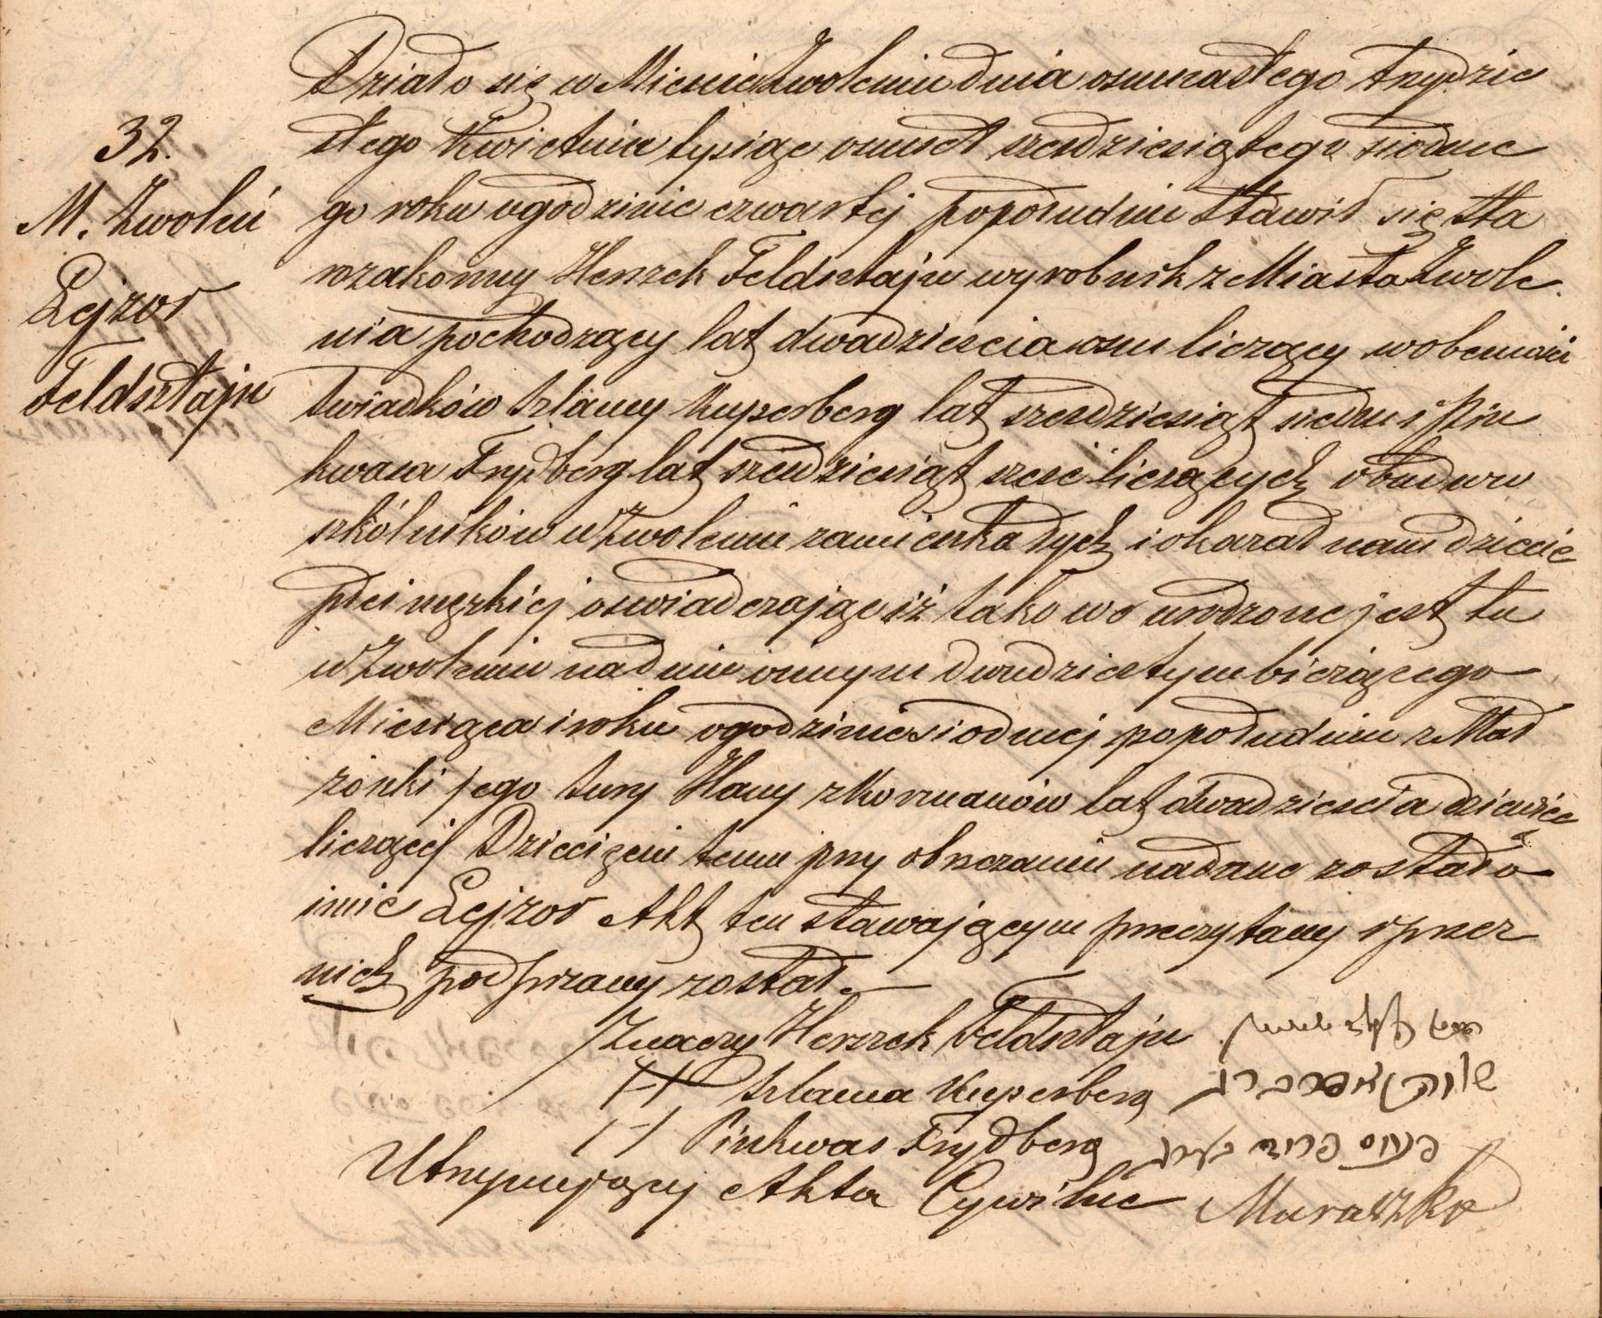 32.
M. Zwoleń
Lejzor
Feldsztajn
Działo się w Mieście Zwoleniu dnia osmnastego trzydzie
stego Kwietnia tysiąc ośmset sześdziesiątego siodme
go roku o godzinie czwartej popołudniu Stawił się sta
rozakonny Herszek Feldsztajn wyrobnik z Miasta Zwole
nia pochodzący lat dwadzieścia osm liczący w obecności
Świadków Szlamy Kuperberg lat sześdziesiąt siedm i Pin
kwasa Frydberg lat sześdziesiąt sześć liczących obudwu
szkólników w Zwoleniu zamieszkałych i okazał nam dziecie
płci męzkiej oświadczając iż takowe urodzone jest tu
w Zwoleniu na dniu osmym dwudziestym bieżącego
Miesiąca i roku o godzinie siodmej popołudniu z Mał
żonki jego Sury Hany z Kormanów lat dwadzieścia dziewięć
liczącej Dziecięciu temu przy obrzezaniu nadane zostało
imie Lejzor Akt ten stawającym przeczytany i przez
nich podpisany został. —
Znaczy Herszek Feldsztajn
H Szlama Kuperberg
H Pinkwas Frydberg פנחס פריד בערג
Utrzymujący Akta Cywilne Muraszko